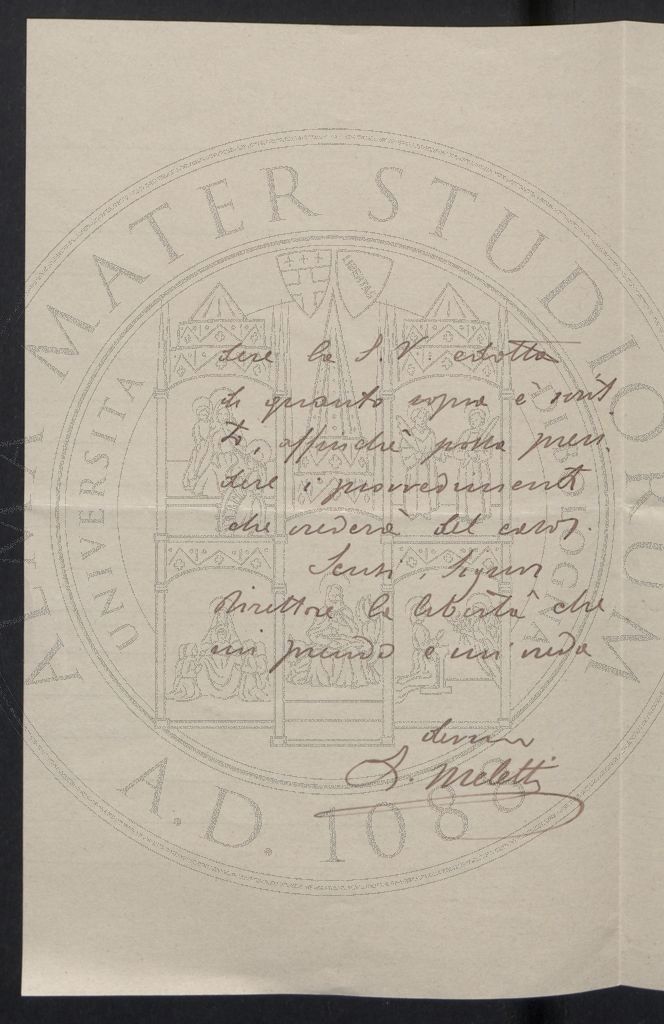 dere la S.V. edotta
di quanto sopra è scrit
to, affinchè possa pren
dere i provvedimenti
che crederà del caso.
Scusi, Signor
Direttore la libertà che
mi prendo e mi creda
devmo
S. Meletti
ALMA MATER STUDIORUM
A.D. 1088
UNIVERSITA DI BOLOGNA
LIBERTAS